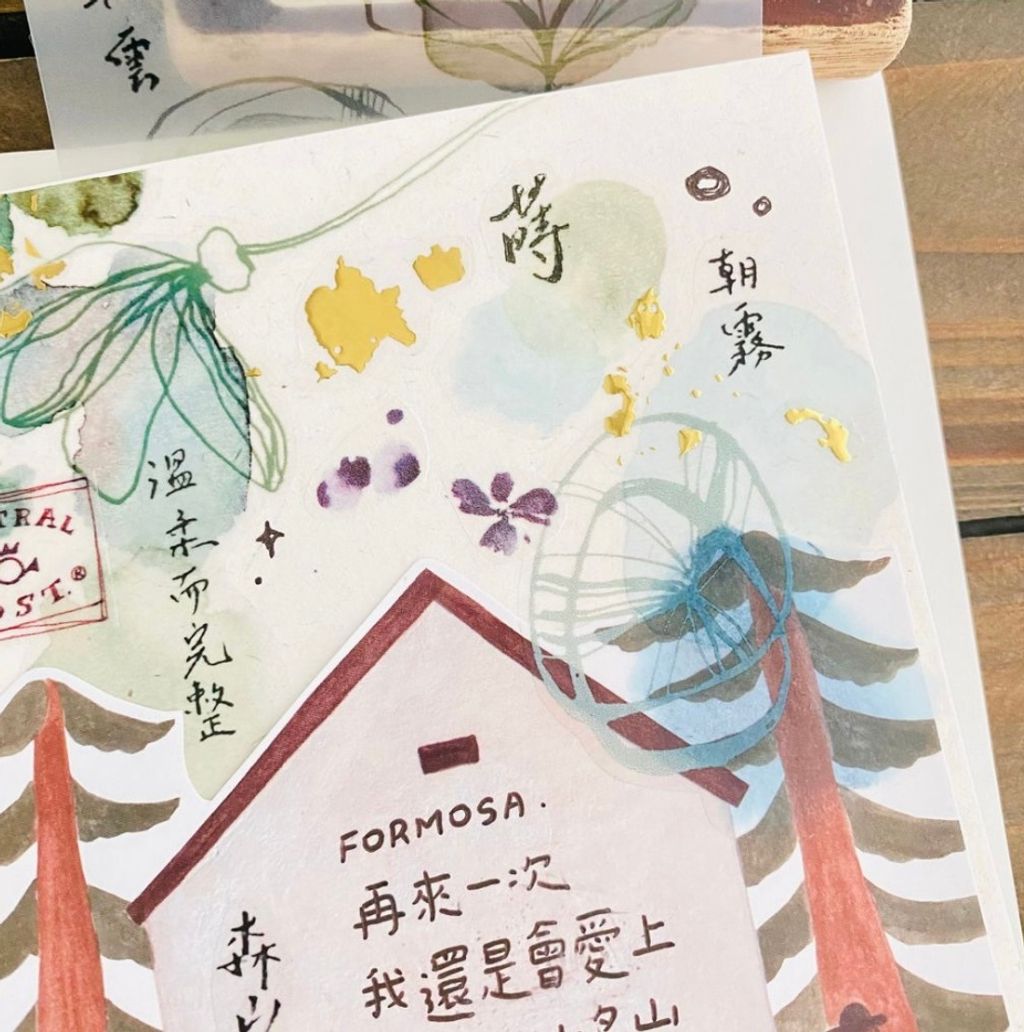 雲
蒔
朝霧
溫柔而完整
TRAL
OST.®
FORMOSA.
再來一次
我還是會愛上
森山